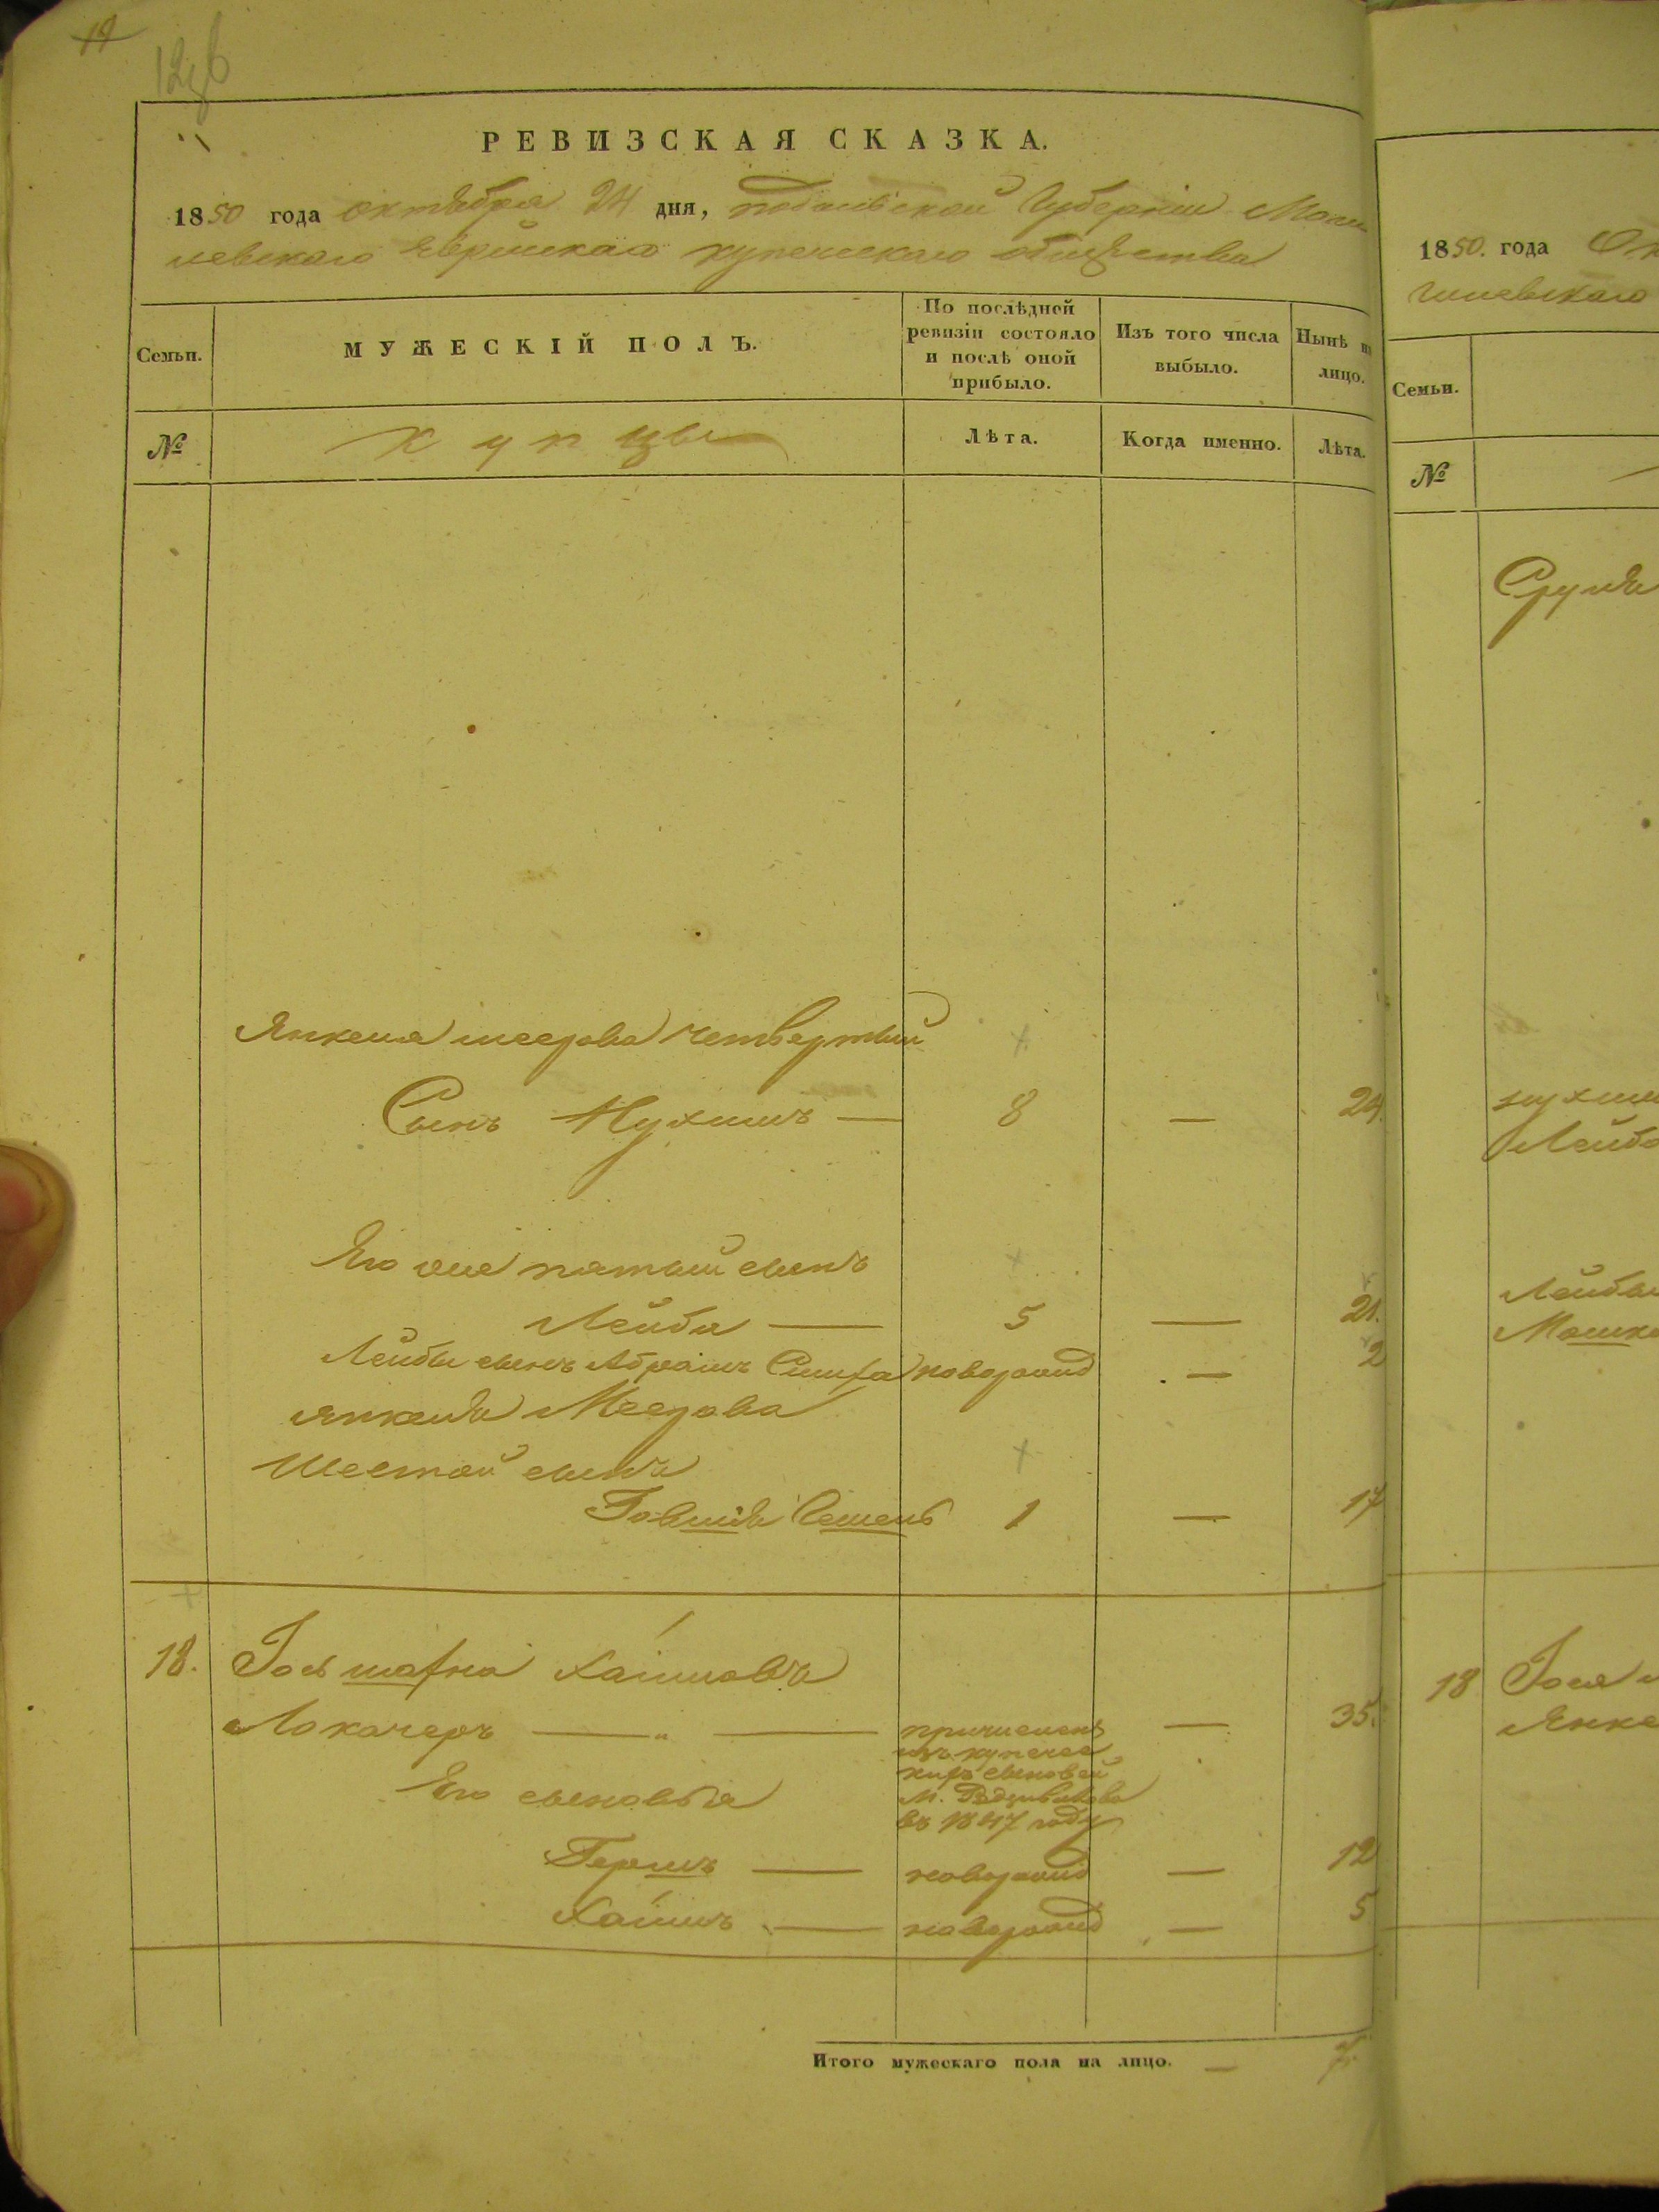 19
РЕВИЗСКАЯ СКАЗКА.
1850 года октября 24 дня, подольской Губернии Моги
левского Еврейскаго купеческаго общества
Семьи.
МУЖЕСКІЙ ПОЛЪ.
По послѣдней ревизіи состояло и послѣ оной прибыло.
Изъ того числа выбыло.
Нынѣ на лицо.
№
купцы
Лѣта.
Когда именно.
Лѣта.
Янкеля меерова четвертый
Сынъ Нухимъ — 8 — 24.
Его же пятый сынъ
Лейба — 5 — 21.
Лейбы сынъ Абрамъ Симха новорожд — 2
Янкеля Меерова
Шестой сынъ
1 — 17
18. Хаимовъ
Локачеръ — „ — причисленъ — 35.
изъ купечес
сыновей
м.
въ 1847 году
Его сыновья
Гершъ — новорожд — 12
Хаимъ — новорожд — 5
Итого мужескаго пола на лицо. — 7.
1850. года Ок
гилевскаго
Семьи.
№
Сруля
нухим
Лейб
Лейбы
Мошко
18 Іося
Янке